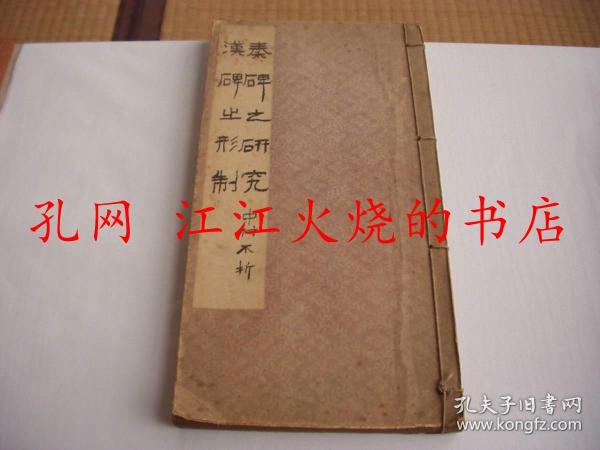 秦碑之研究
漢碑之形制
中村不折
孔网 江江火烧的书店
孔夫子旧书网
www.kongfz.com